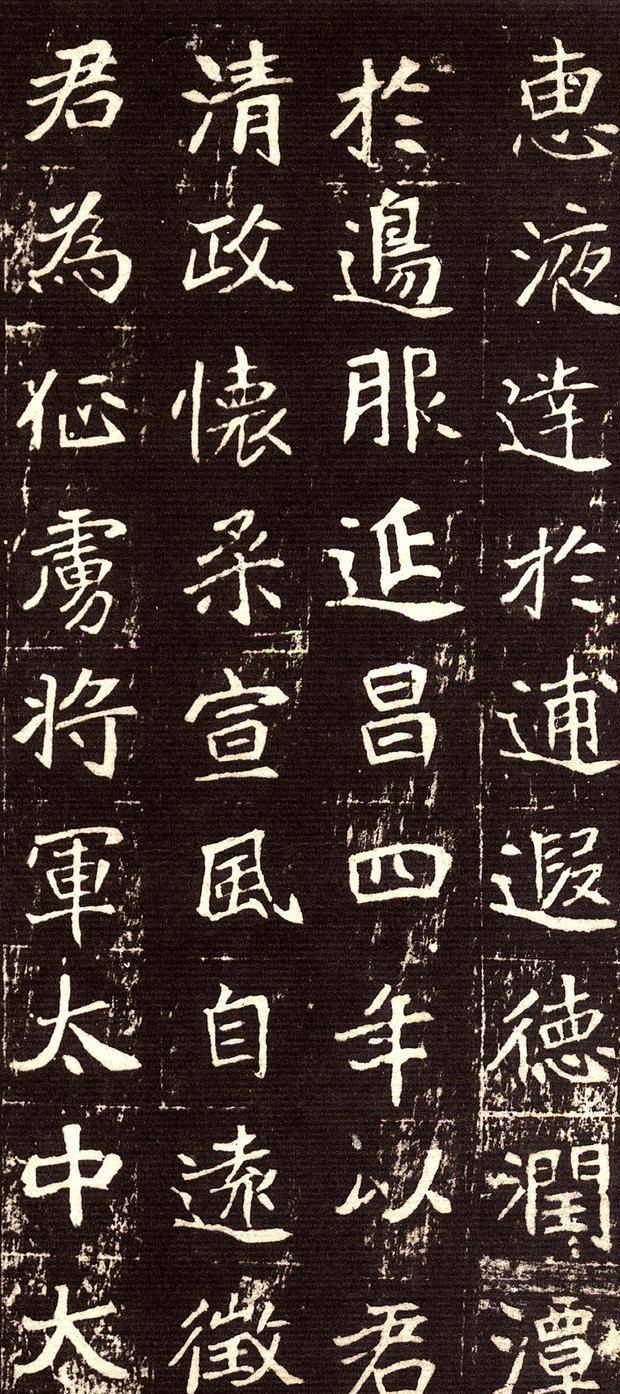 惠液達於逋遐德潤潭
於邊服延昌四年以君
清政懷柔宣風自遠徵
君為征虜將軍太中大